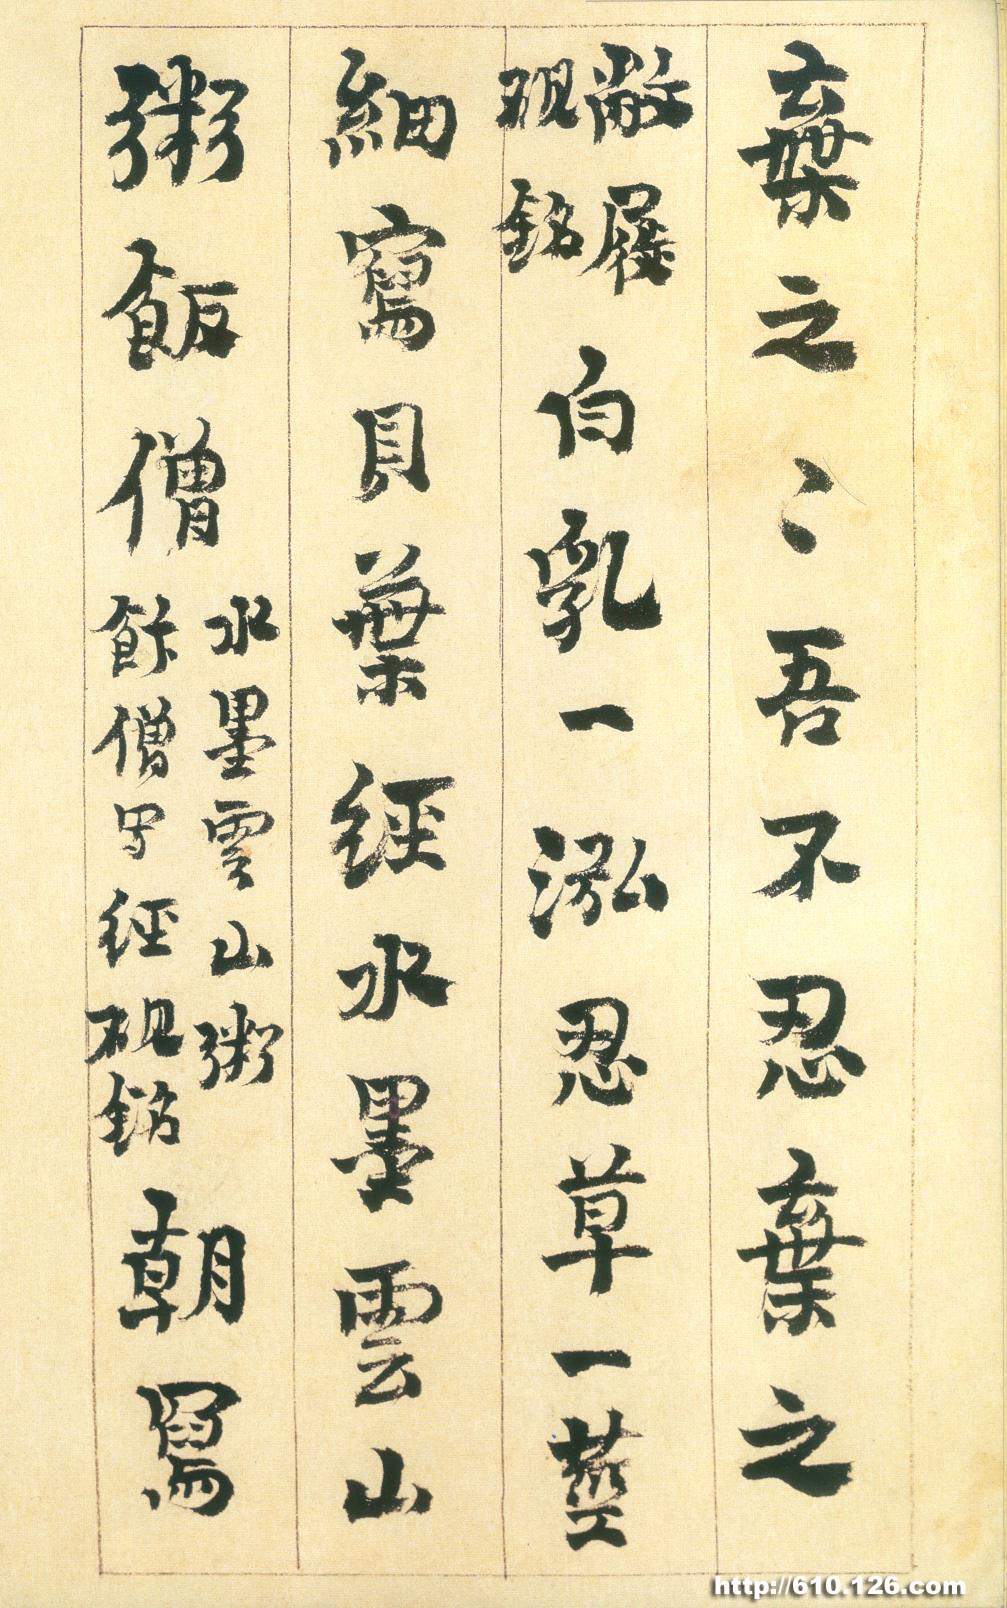 棄之〻吾不忍棄之
敝屣
硯銘
白乳一泓忍草一莖
細寫貝葉經水墨雲山
粥飯僧
水墨雲山粥
飰僧写經硯銘
朝寫
http://610.126.com